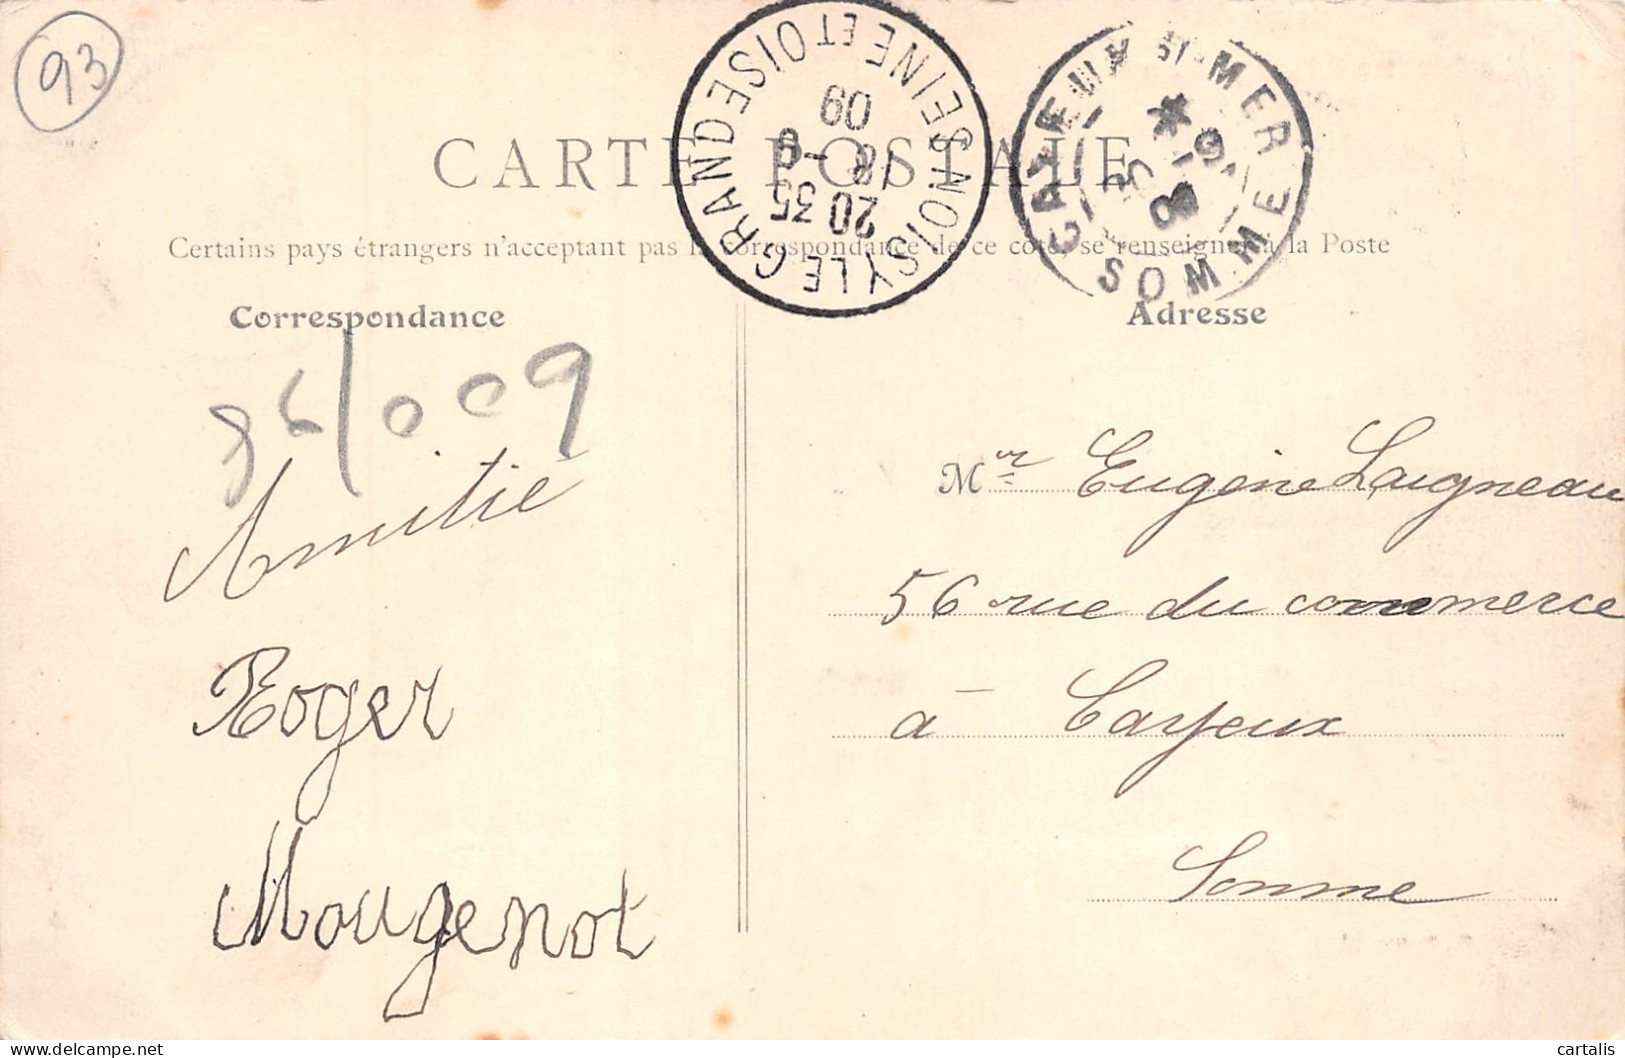 93
CARTE POSTALE
NOISY LE GRAND SEINE ET OISE
20 35
18 -8
09
CAYEUX S-MER
SOMME
Certains pays étrangers n'acceptant pas la correspondance de ce côté, se renseigner à la Poste
Correspondance
Adresse
Amitié
Roger
Mougenot
Mr Eugène Laigneau
56 rue du commerce
à Cayeux
Somme
cartalis
delcampe.net